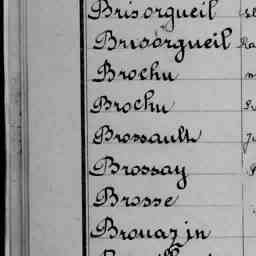 Brisorgueil
Brisorgueil
Brochu
Brochu
Brossault
Brossay
Brosse
Brouazin